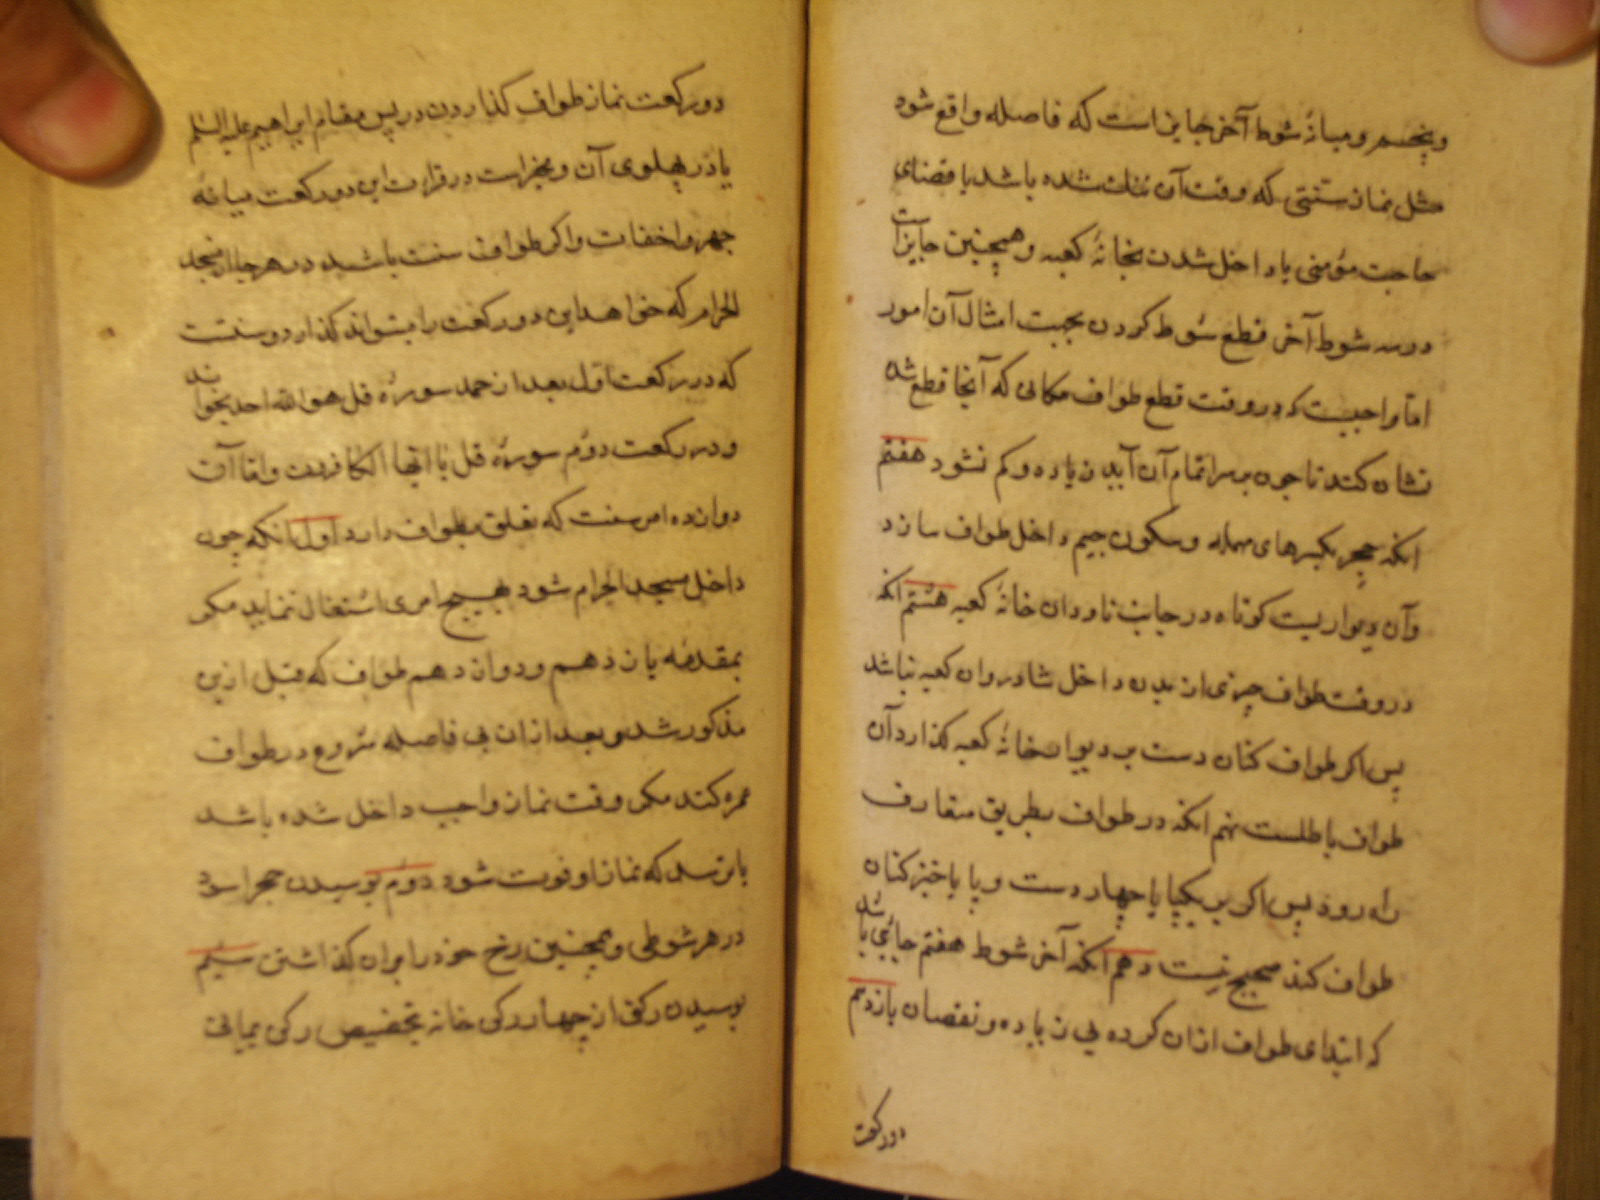 و پنجم و میانهٔ شوط آخر جایز است که فاصله واقع شود
مثل نماز سنتی که وقت آن تنک شده باشد یا قضای
حاجت مؤمنی یا داخل شدن بخانهٔ کعبه و همچنین جایز است
در سه شوط آخر قطع شوط کردن بجهت امثال آن امور
امّا واجبست که در وقت قطع طواف مکانی که آنجا قطع شده
نشان کند تا چون بر سر اتمام آن آید زیاده و کم نشود هفتم
آنکه حجر بکسر های مهمله و سکون جیم داخل طواف سازد
و آن دیواریست کوتاه در جانب ناودان خانهٔ کعبه هشتم آنکه
در وقت طواف چیزی از بدن داخل شادروان کعبه نباشد
پس اگر طواف کنان دست بر دیوار خانهٔ کعبه گذارد آن
طواف باطلست نهم آنکه در طواف بطریق متعارف
راه رود پس اگر بر یکپا یا چهار دست و پا یا خیز کنان
طواف کند صحیح نیست دهم آنکه آخر شوط هفتم جائی باشد
که ابتدای طواف از آن کرده بی زیاده و نقصان یازدهم
دو رکعت
دو رکعت نماز طواف گذاردن در پس مقام ابراهیم علیه السلم
یا در پهلوی آن و مخیر است در قرائت این دو رکعت میانهٔ
جهر و اخفات و اگر طواف سنت باشد در هر جا از مسجد
الحرام که خواهد این دو رکعت را میتواند گذارد و سنتست
که در رکعت اول بعد از حمد سورهٔ قل هو الله احد بخواند
و در رکعت دوّم سورهٔ قل یا ایها الکافرون و امّا آن
دوازده امر سنت که تعلق بطواف دارد اول آنکه چون
داخل مسجد الحرام شود بهیچ امری اشتغال ننماید مگر
بمقدمهٔ یازدهم و دوازدهم طواف که قبل ازین
مذکور شد و بعد از آن بی فاصله شروع در طواف
عمره کند مگر وقت نماز واجب داخل شده باشد
یا ترسد که نماز او فوت شود دوّم بوسیدن حجر اسود
در هر شوطی و همچنین رخ خود را بر آن گذاشتن سیّم
بوسیدن رکن از چهار رکن خانه بتخصیص رکن یمانی